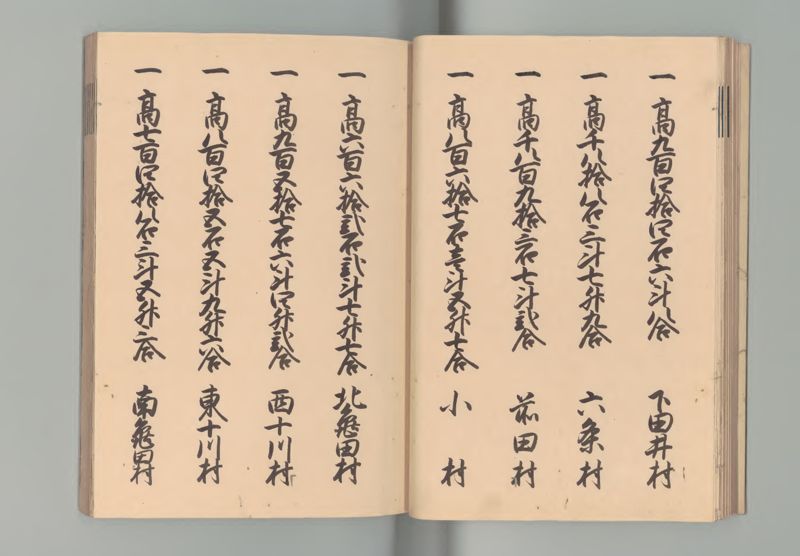 一 高九百四拾四石六斗八合 下田井村
一 高千八拾八石三斗七升九合 六条村
一 高千八百九拾三石七斗弐合 前田村
一 高八百六拾七石壱斗五升七合 小村
一 高六百六拾弐石弐斗七升七合 北亀田村
一 高九百五拾七石六斗四升弐合 西十川村
一 高八百四拾五石五斗九升六合 東十川村
一 高七百四拾八石三斗五升三合 南亀田村